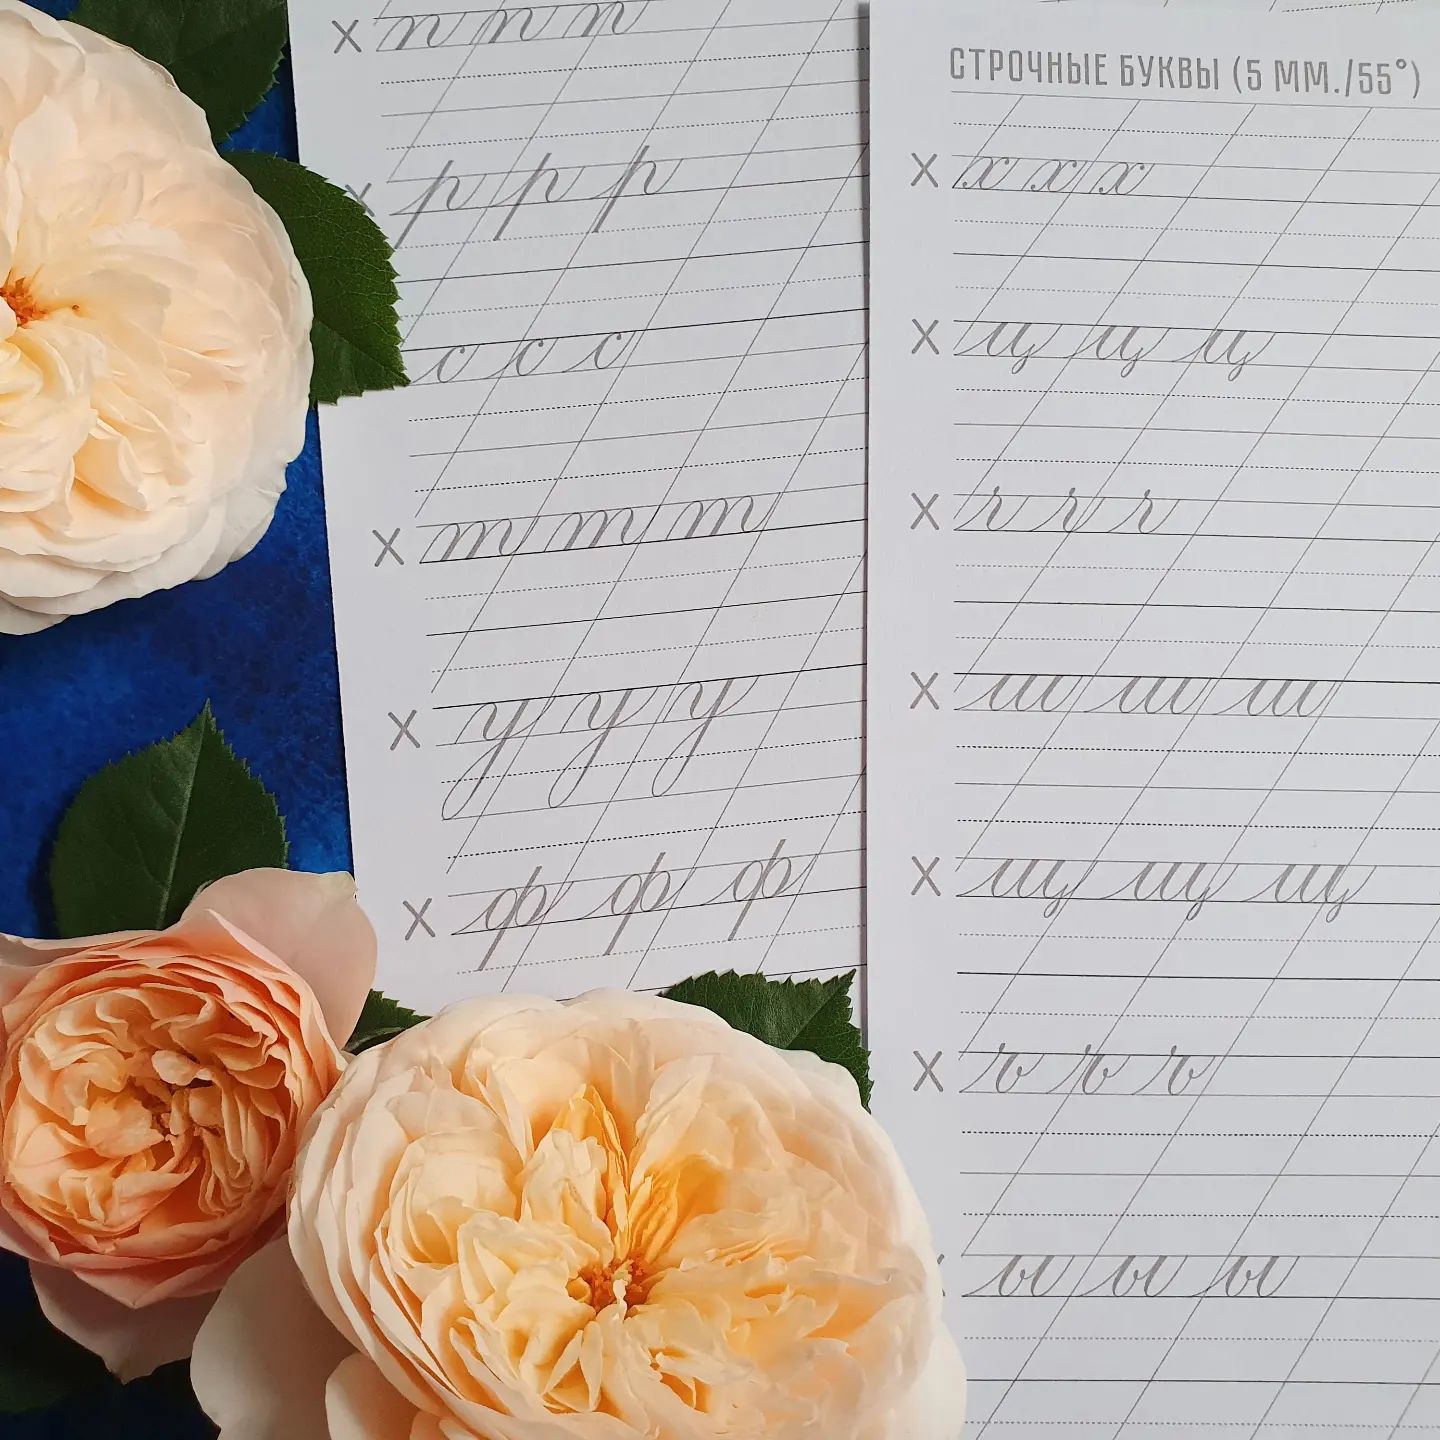 X п п п
X р р р
с с с
X т т т
X у у у
X ф ф ф
СТРОЧНЫЕ БУКВЫ (5 ММ./55°)
X х х х
X ц ц ц
X ч ч ч
X ш ш ш
X щ щ щ
X ъ ъ ъ
ы ы ы